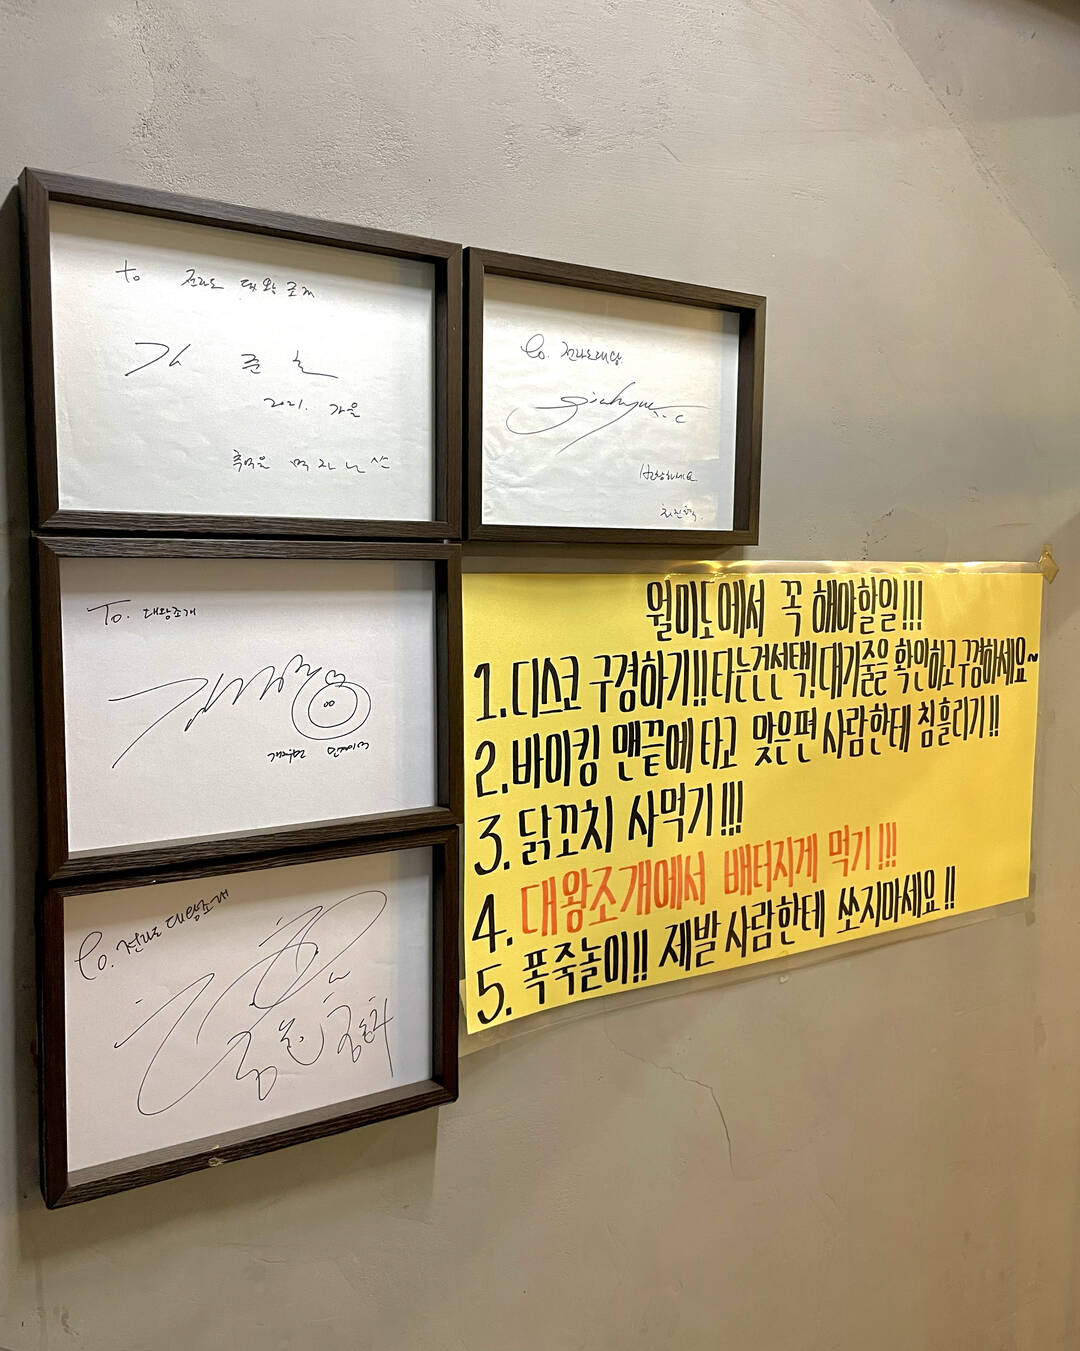 to 전라도 대왕조개
김 준 호
2021. 가을
추억을 먹자
To. 전라도대왕
건강하세요
최진혁.
To. 대왕조개
개그맨
To. 전라도 대왕조개
월미도에서 꼭 해야할일!!!
1. 디스코 구경하기!! 타는건선택! 대기줄을 확인하고 구경하세요~
2. 바이킹 맨끝에 타고 맞은편 사람한테 침흘리기!!
3. 닭꼬치 사먹기!!!
4. 대왕조개에서 배터지게 먹기!!!
5. 폭죽놀이!! 제발 사람한테 쏘지마세요!!